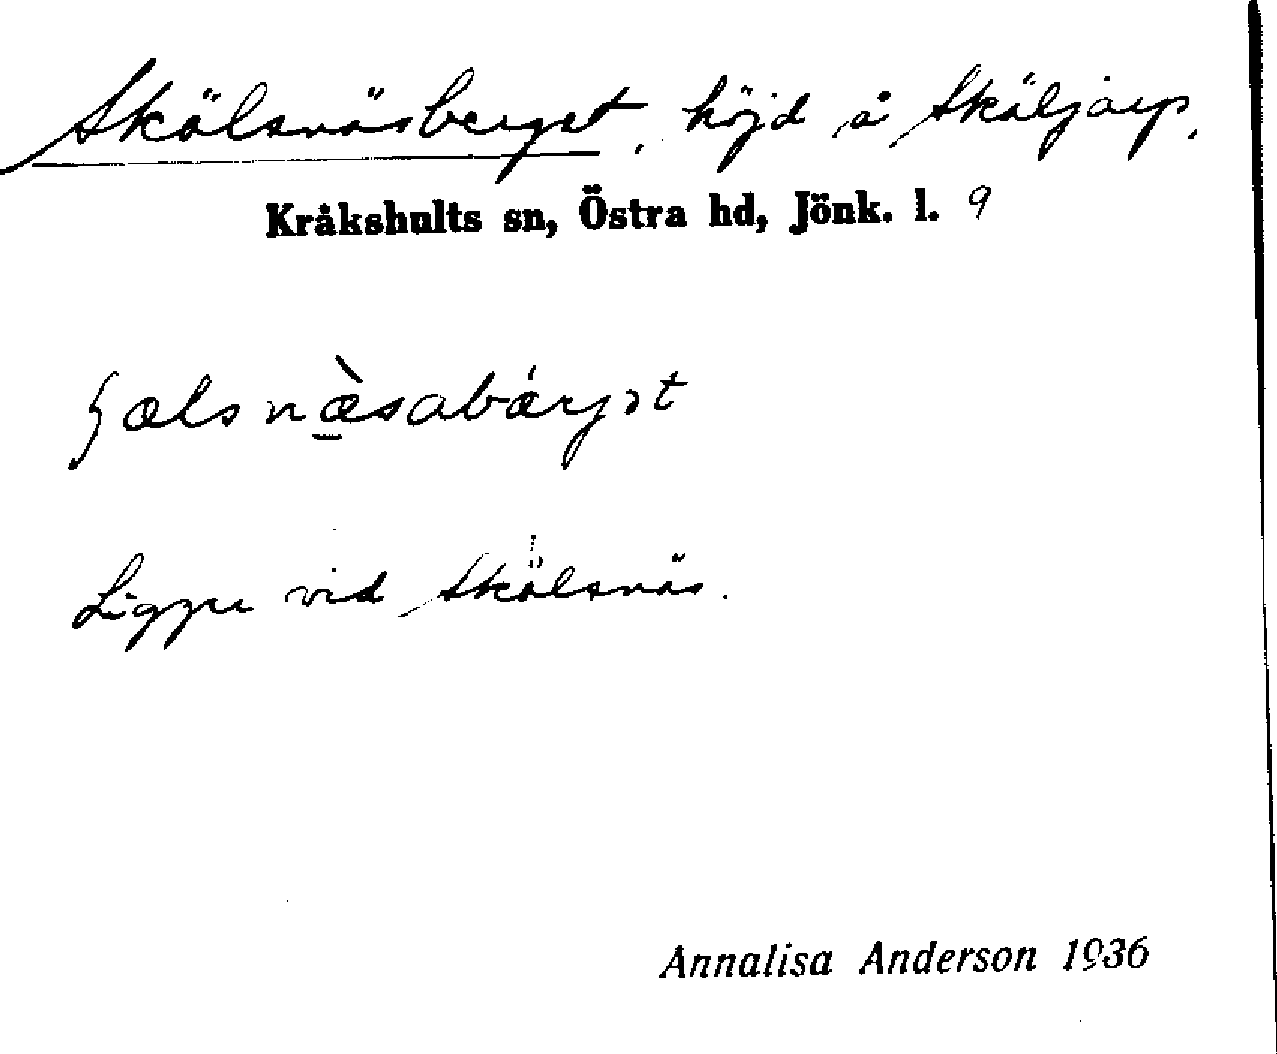 Skälsnäsberget, höjd å Skäljarp.
Kråkshults sn, Östra hd, Jönk. l. 9
ʃælsnæ̀sabárgət
Ligger vid Skälsnäs.
Annalisa Anderson 1936